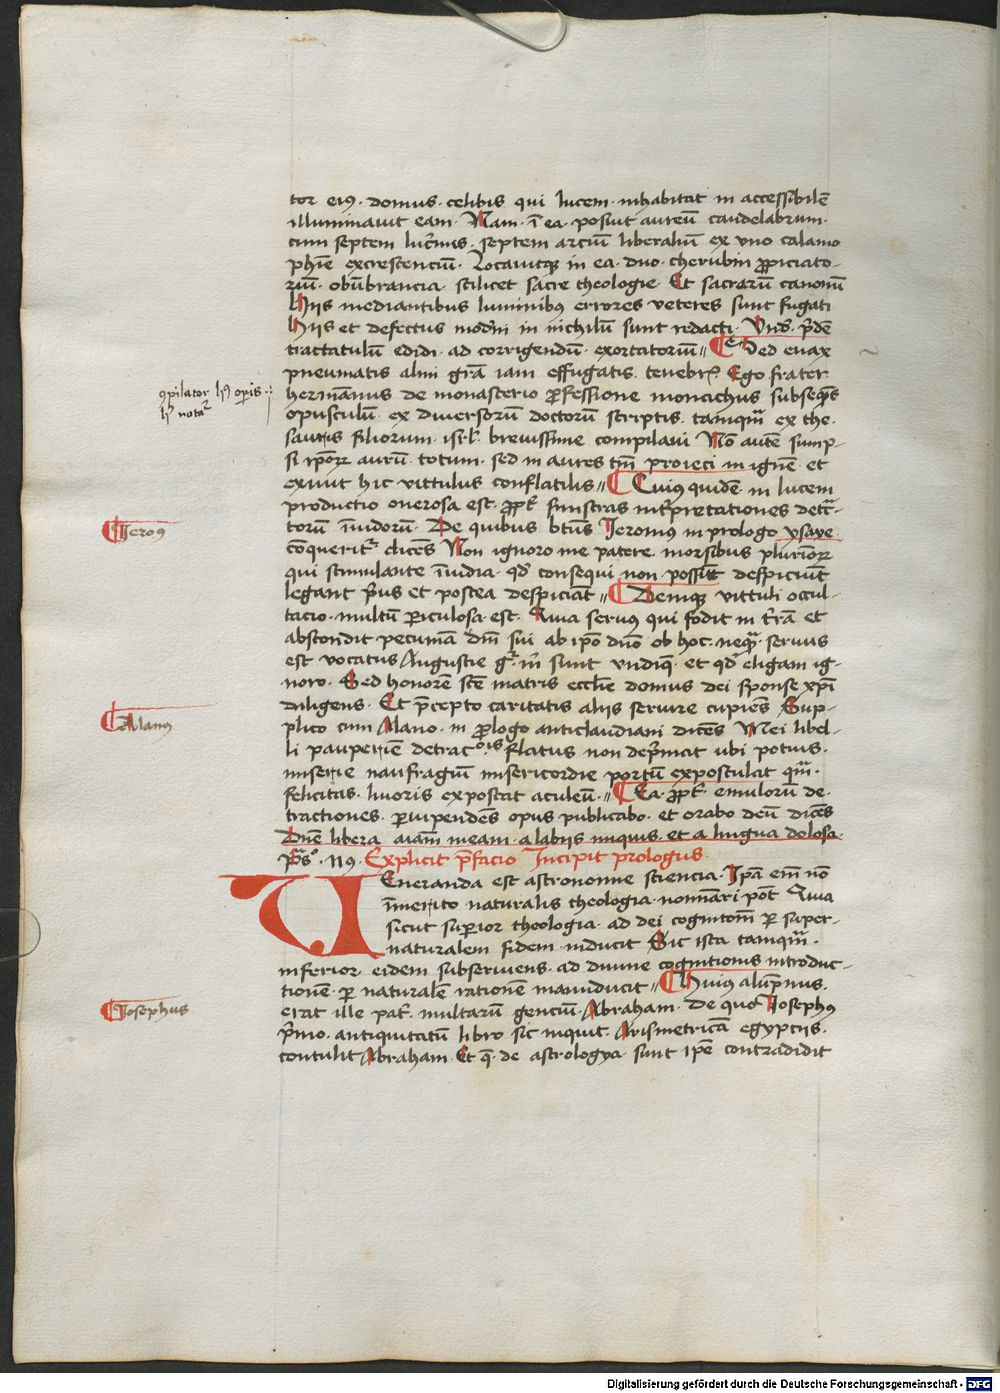 tor eiꝰ · domus · celibis qui lucem · inhabitat in accessibilē
illuminauit eam · Nam · ī ea · posuit aureū candelabrum ·
cum septem luc̄rnis · septem arciū liberaliū ex vno calamo
phīe excrescenciū · Locauitqꝫ in ea · duo · cherubin ꝓpiciato-
riū · obūbrancia · scilicet sacre theologie · Et sacrarū canonū
Hiis mediantibus luminibꝰ errores veteres sunt fugati
Hiis et defectus mod̄ni in nichilū sunt redacti · Vnd̄ · p̄dē
tractatulū edidi · ad corrigendū · exortatoriū // Sed euax
pneumatis almi grā̄ iam effugatis · tenebrꝭ · Ego frater
hermānus de monasterio ꝓfessione monachus subseqn̄s
opusculū · ex diuersorū doctorū scriptis · tamqm̄ ex the-
sauris filiorum · isrl̄ · breuissime compilaui Nō autē sump-
si ip̄oꝝ aurū · totum · sed in aures tm̄ proieci in ignē · et
exiuit hic vittulus conflatilis // Cuiꝰ quidē · in lucem
productio onerosa est · ꝓpt̄ · sinistras int̄pretationes detᷓc-
torū īuidorū · De quibus btūs Ieronimꝰ in prologo ysaye
cōqueritꝛ dicēs Non ignoro me patere · morsibus plurimoꝝ
qui stimulante īuidia · qd̄ consequi non possūt despiciūt
legant p̄us et postea despiciāt // Deniqꝫ vittuli occul-
tacio · multū ꝑiculosa · est · Quia seruꝰ qui fodit in t̄rā et
abscondit pecuniā dn̄i sui ab ip̄o dn̄o ob hoc · neqᷓ · seruus
est vocatus Angustie gͦ · m̄ sunt vndiqꝫ · et qd̄ eligam ig-
noro · Sed honorē scē matris eccl̄ie domus dei sponse xp̄i
diligens · Et p̄cepto caritatis aliis seruire cupiēs Sup-
plico cum Alano · in ꝓlogo anticlaudiani dicēs Mei libel-
li pauperiē detracͦ̄is flatus non dep̄mat ubi potius ·
miserie naufragiū misericordie portū expostulat qm̄ ·
felicitas · liuoris expostat aculeū · // Ea ꝓpt̄ · emulorū de-
tractiones · ꝑuipendēs opus publicabo · et orabo deū dicēs
Dn̄e libera aīam meam · a labiis iniquis · et a lingua dolosa ·
pͣsͦ · 119 · Explicit p̄facio Incipit prologus ·
VEneranda est astronomie sciencia · Ip̄a em̄ nō
īmerito naturalis theologia · nomīari pōt Quia
sicut suꝑior theologia · ad dei cognitōm̄ ꝑ super-
naturalem fidem · inducit Sic ista tamqm̄ ·
inferior · eidem subseruiens · ad diuine cognitionis introduc-
tionē · ꝑ naturalē rationem manuducit // Huiꝰ alūpnus ·
erat ille pat̄ multarū genciū · Abraham · De quo Iosephꝰ
p̄mo · antiquitatū libro sic inquit · Arismetricā egyptiis ·
contulit Abraham · Et q̄ · de astrologya · sunt ip̄e contradidit
ꝯpilator hꝰ oꝑis ·:
hͥ notaꝛ
Ieroꝰ
Alanꝰ
Iosephus
Digitalisierung gefördert durch die Deutsche Forschungsgemeinschaft - DFG